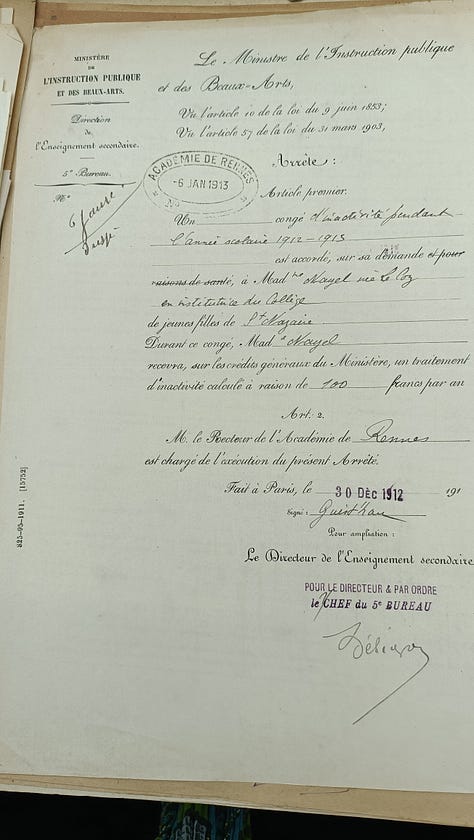 MINISTÈRE
DE
L'INSTRUCTION PUBLIQUE
ET DES BEAUX-ARTS.
Direction
de
l'Enseignement secondaire.
5e Bureau.
No
Le Ministre de l'Instruction publique
et des Beaux-Arts,
Vu l'article 10 de la loi du 9 juin 1853;
Vu l'article 57 de la loi du 31 mars 1903,
Arrête :
ACADÉMIE DE RENNES
-6 JAN 1913
No
Article premier.
Un congé d'inactivité pendant
l'année scolaire 1912-1913
est accordé, sur sa demande et pour
raisons de santé, à Mad me Nayel née Le Coz
en institutrice du Collège
de jeunes filles de St Nazaire
Durant ce congé, Mad e Nayel
recevra, sur les crédits généraux du Ministère, un traitement
d'inactivité calculé à raison de 100 francs par an
Art. 2.
M. le Recteur de l'Académie de Rennes
est chargé de l'exécution du présent Arrêté.
Fait à Paris, le 30 DÉC 1912 191
Signé : Guist'hau
Pour ampliation :
Le Directeur de l'Enseignement secondaire
POUR LE DIRECTEUR & PAR ORDRE
le CHEF du 5e BUREAU
825-95-1911. [15752]